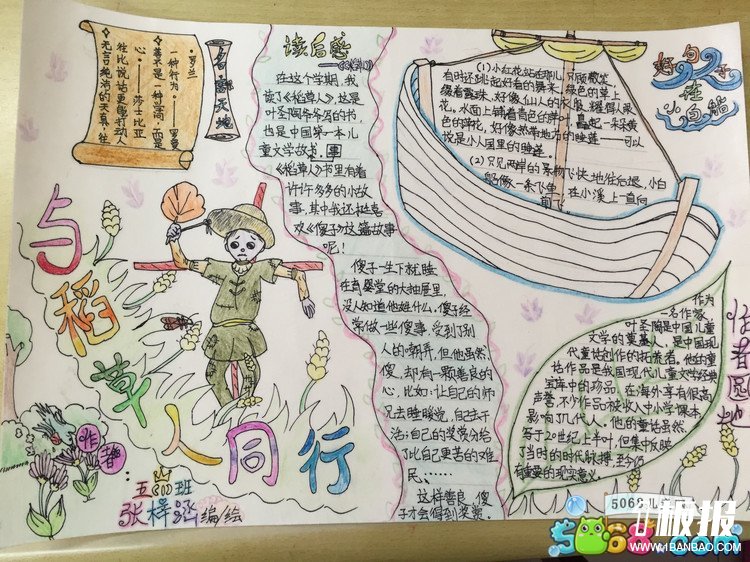 名言天地
·罗兰
一种行为。——罗曼
善不是一种学问，而是
心。——莎士比亚
往比说话更能打动人
无言纯洁的天真，往
与稻草人同行
作者：
五（1）班
张梓涵编绘
读后感
在这个学期，我
读了《稻草人》，这是
叶圣陶爷爷写的书，
也是中国第一本儿
童文学故事书。
《稻草人》书里有着
许许多多的小故
事，其中我还挺喜
欢《傻子》这篇故事
呢！
傻子一生下就睡
在育婴堂的大抽屉里，
没人知道他姓什么，傻子经
常做一些傻事，受到了别
人的嘲弄，但他虽然
傻，却有一颗善良的
心，比如：让自己的师
兄去睡睡觉，自己去干
活；自己的奖赏分给
了比自己更苦的难
民、……
这样善良，傻
子才会得到奖赏。
好句子
在
小白船
（1）小红花站在那儿，只顾微笑，
有时还跳起好看的舞来。绿色的草上
缀着露珠，好像仙人的衣服，耀得人眼
花。水面上铺着青色的萍叶，矗起一朵朵黄
色的萍花，好像热带地方的睡莲——可以
说是小人国里的睡莲。
（2）只见两岸的景物飞快地往后退，小白
船像一条飞鱼，在小溪上一直向
前
作者园地
作为
一名作家，
叶圣陶是中国儿童
文学的奠基人，是中国现
代童话创作的拓荒者。他的童
话作品是我国现代儿童文学经典
宝库中的珍品，在海外享有很高
声誉，不少作品被收入中小学课本，
影响了几代人。他的童话虽然
写于20世纪上半叶，但集中反映
了当时的时代脉搏，至今仍
有重要的现实意义。
5068儿童
5068.com
板报
WWW.1BANBAO.COM